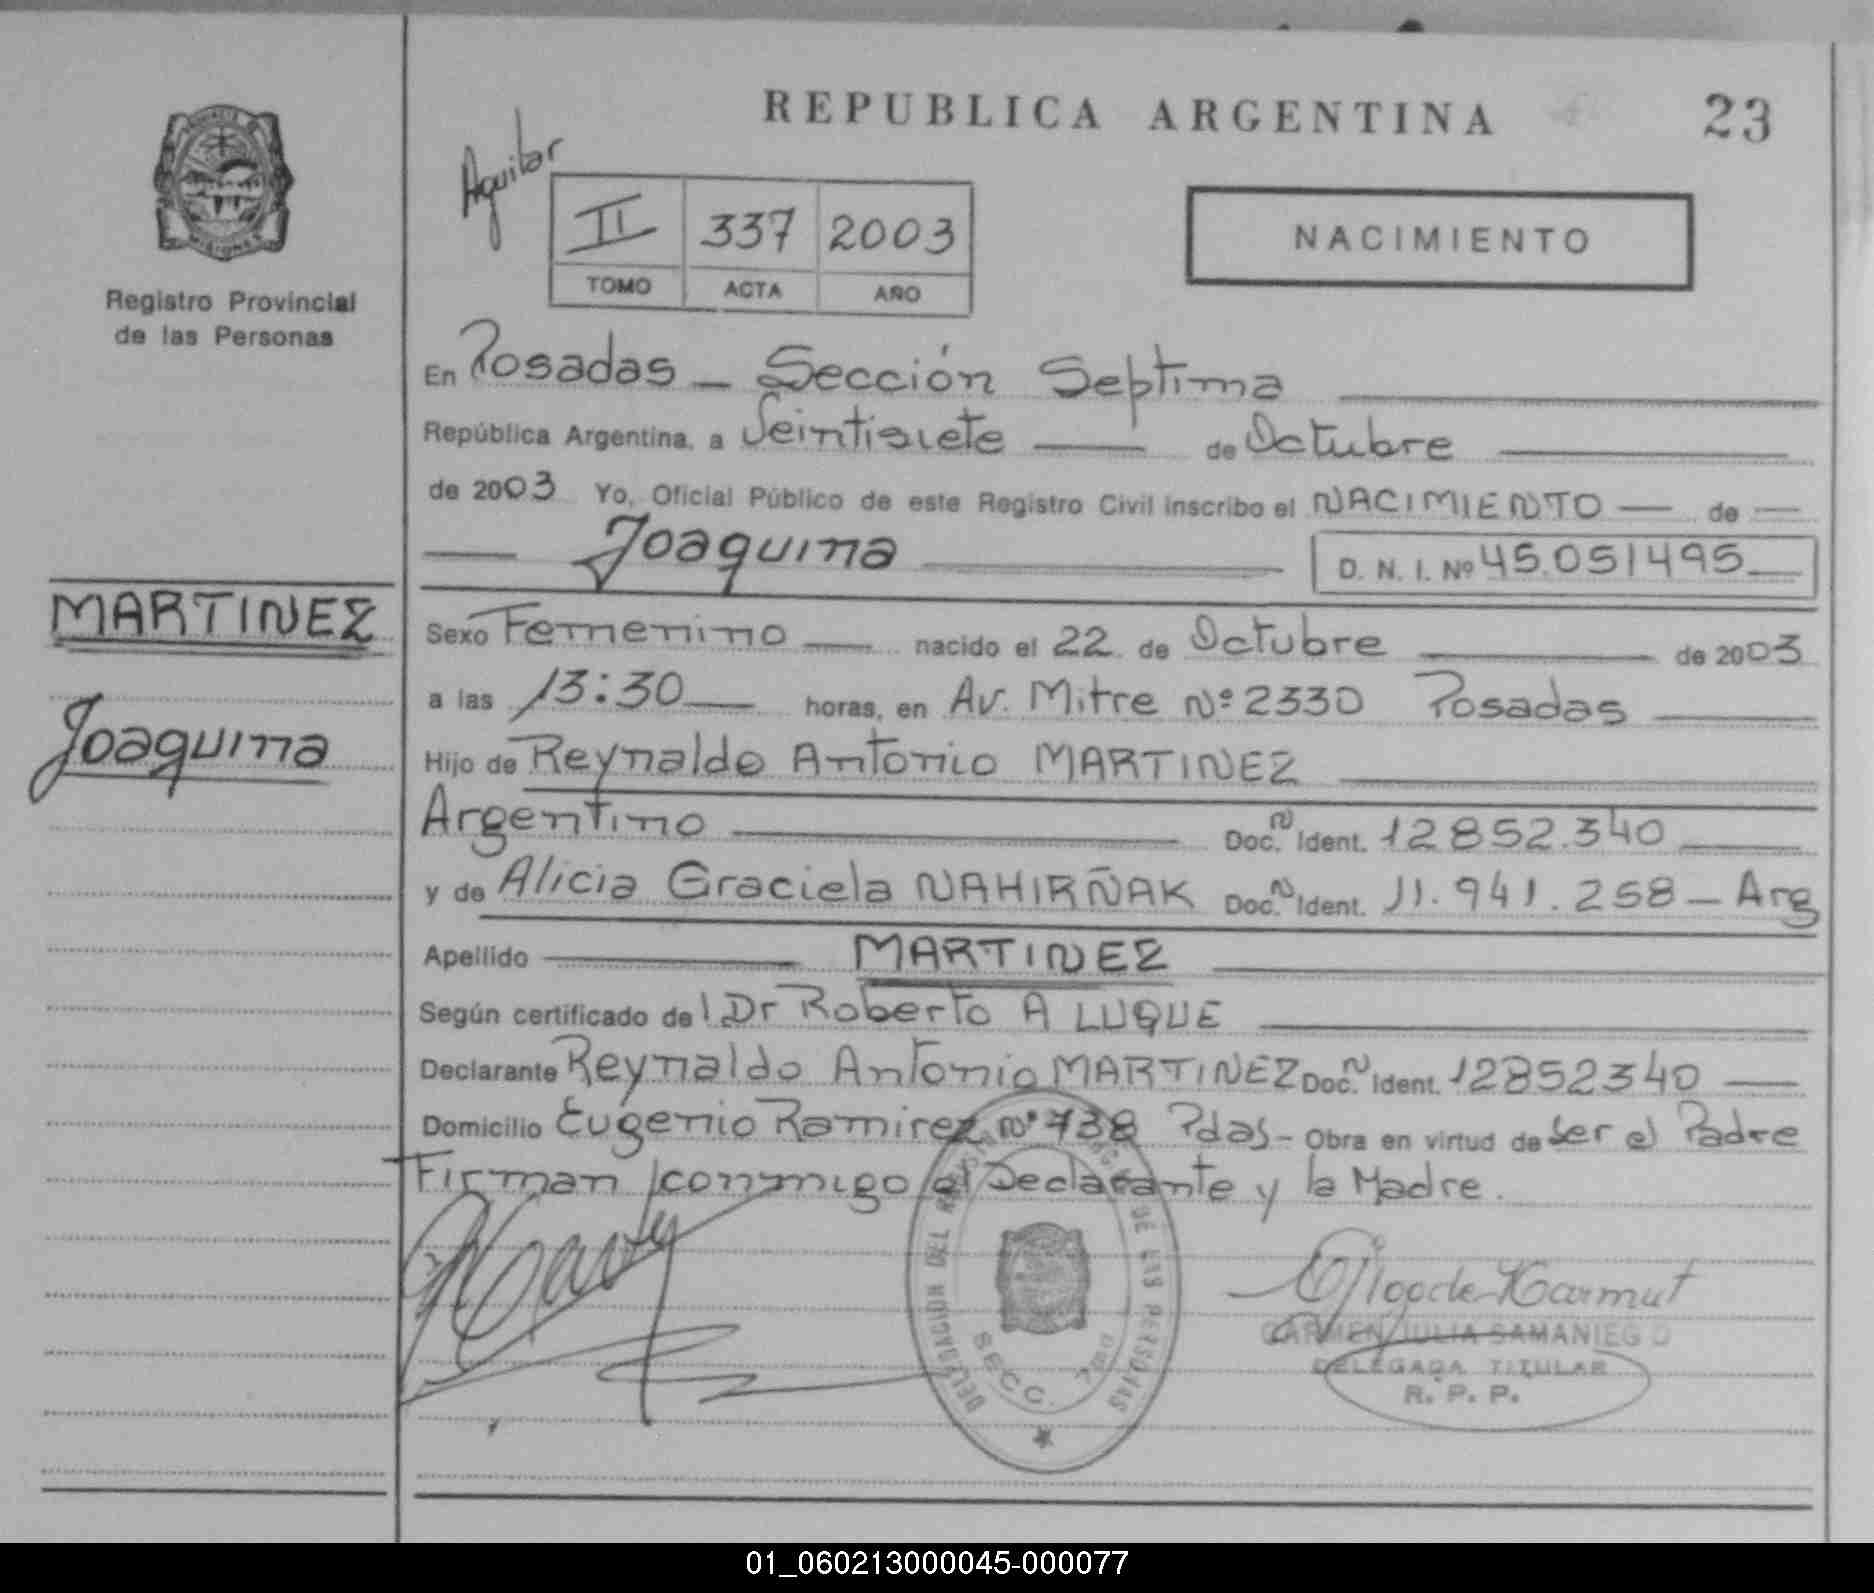 REPUBLICA ARGENTINA
23
PROVINCIA DE
MISIONES
Registro Provincial
de las Personas
Aguilar
II 337 2003
TOMO ACTA AÑO
NACIMIENTO
En Posadas - Sección Septima
República Argentina, a Veintisiete de Octubre
de 2003 Yo, Oficial Público de este Registro Civil inscribo el NACIMIENTO de
Joaquina D. N. I. Nº 45.051495
MARTINEZ
Joaquina
Sexo Femenino nacido el 22 de Octubre de 2003
a las 13:30 horas, en Av. Mitre Nº 2330 Posadas
Hijo de Reynaldo Antonio MARTINEZ
Argentino Doc.N Ident. 12852.340
y de Alicia Graciela NAHIRÑAK Doc.N Ident. 11.941.258 - Arg
Apellido MARTINEZ
Según certificado del Dr Roberto A LUQUE
Declarante Reynaldo Antonio MARTINEZ Doc.N Ident. 12852340
Domicilio Eugenio Ramirez Nº 738 Pdas - Obra en virtud de Ser el Padre
Firman conmigo el Declarante y la Madre.
DELEGACION DEL DE LAS PERSONAS
SECC. 7
CARMEN JULIA SAMANIEGO
DELEGADA TITULAR
R. P. P.
01_060213000045-000077